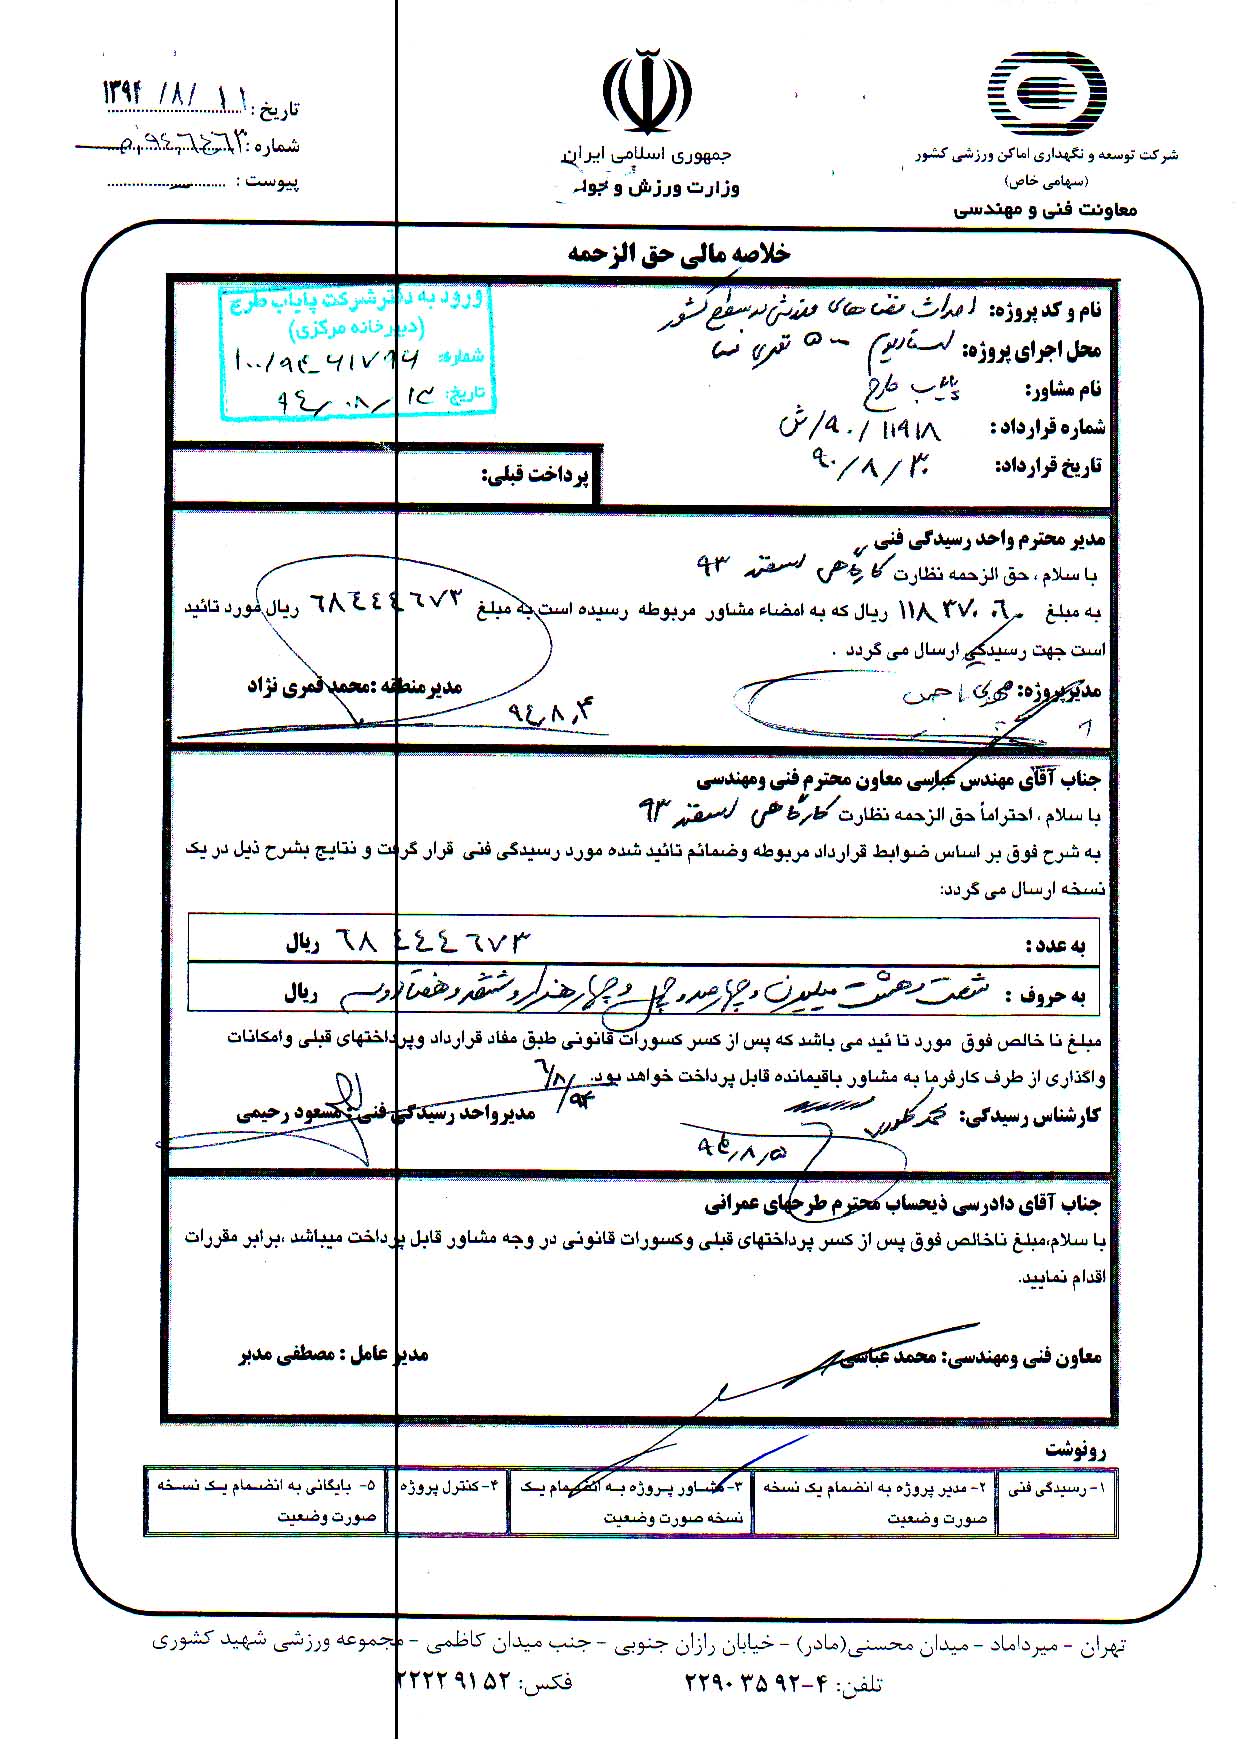 شرکت توسعه و نگهداری اماکن ورزشی کشور
(سهامی خاص)
معاونت فنی و مهندسی
جمهوری اسلامی ایران
وزارت ورزش و جوانان
تاریخ: ۱۳۹۴/۸/۱۱
شماره:
پیوست:
خلاصه مالی حق الزحمه
ورود به دفتر شرکت پایاب طرح
(دبیرخانه مرکزی)
شماره:
تاریخ: ۹٤/۰۸/۱۳
نام و کد پروژه: احداث فضاهای ورزشی در سطح کشور
محل اجرای پروژه: استادیوم ۵۰۰ نفری
نام مشاور: پایاب طرح
شماره قرارداد: ۱۱۹۱۸/۹۰/ش
تاریخ قرارداد: ۹۰/۸/۳۰
پرداخت قبلی:
مدیر محترم واحد رسیدگی فنی
با سلام ، حق الزحمه نظارت کارگاهی اسفند ۹۳
به مبلغ ۱۱۸۳۷۰۰۶۰ ریال که به امضاء مشاور مربوطه رسیده است به مبلغ ٦٨٤٤٤٦٧٣ ریال مورد تائید
است جهت رسیدگی ارسال می گردد .
مدیر پروژه: مهدی
مدیر منطقه :محمد قمری نژاد
۹٤,۸,۴
جناب آقای مهندس عباسی معاون محترم فنی ومهندسی
با سلام ، احتراماً حق الزحمه نظارت کارگاهی اسفند ۹۳
به شرح فوق بر اساس ضوابط قرارداد مربوطه وضمائم تائید شده مورد رسیدگی فنی قرار گرفت و نتایج بشرح ذیل در یک
نسخه ارسال می گردد:
به عدد : ٦٨٤٤٤٦٧٣ ریال
به حروف : شصت و هشت میلیون و چهارصد و چهل و چهار هزار و ششصد و هفتاد و سه ریال
مبلغ نا خالص فوق مورد تا ئید می باشد که پس از کسر کسورات قانونی طبق مفاد قرارداد وپرداختهای قبلی وامکانات
واگذاری از طرف کارفرما به مشاور باقیمانده قابل پرداخت خواهد بود.
کارشناس رسیدگی:
۹٤,۸,۵
مدیرواحد رسیدگی فنی : مسعود رحیمی
۹۴/۸/٦
جناب آقای دادرسی ذیحساب محترم طرحهای عمرانی
با سلام،مبلغ ناخالص فوق پس از کسر پرداختهای قبلی وکسورات قانونی در وجه مشاور قابل پرداخت میباشد ،برابر مقررات
اقدام نمایید.
معاون فنی ومهندسی: محمد عباسی
مدیر عامل : مصطفی مدبر
رونوشت
۱- رسیدگی فنی
۲- مدیر پروژه به انضمام یک نسخه
صورت وضعیت
۳- مشاور پروژه به انضمام یک
نسخه صورت وضعیت
۴- کنترل پروژه
۵- بایگانی به انضمام یک نسخه
صورت وضعیت
تهران - میرداماد - میدان محسنی(مادر) - خیابان رازان جنوبی - جنب میدان کاظمی - مجموعه ورزشی شهید کشوری
تلفن: ۴-۲۲۹۰۳۵۹۲ فکس: ۲۲۲۲۹۱۵۲